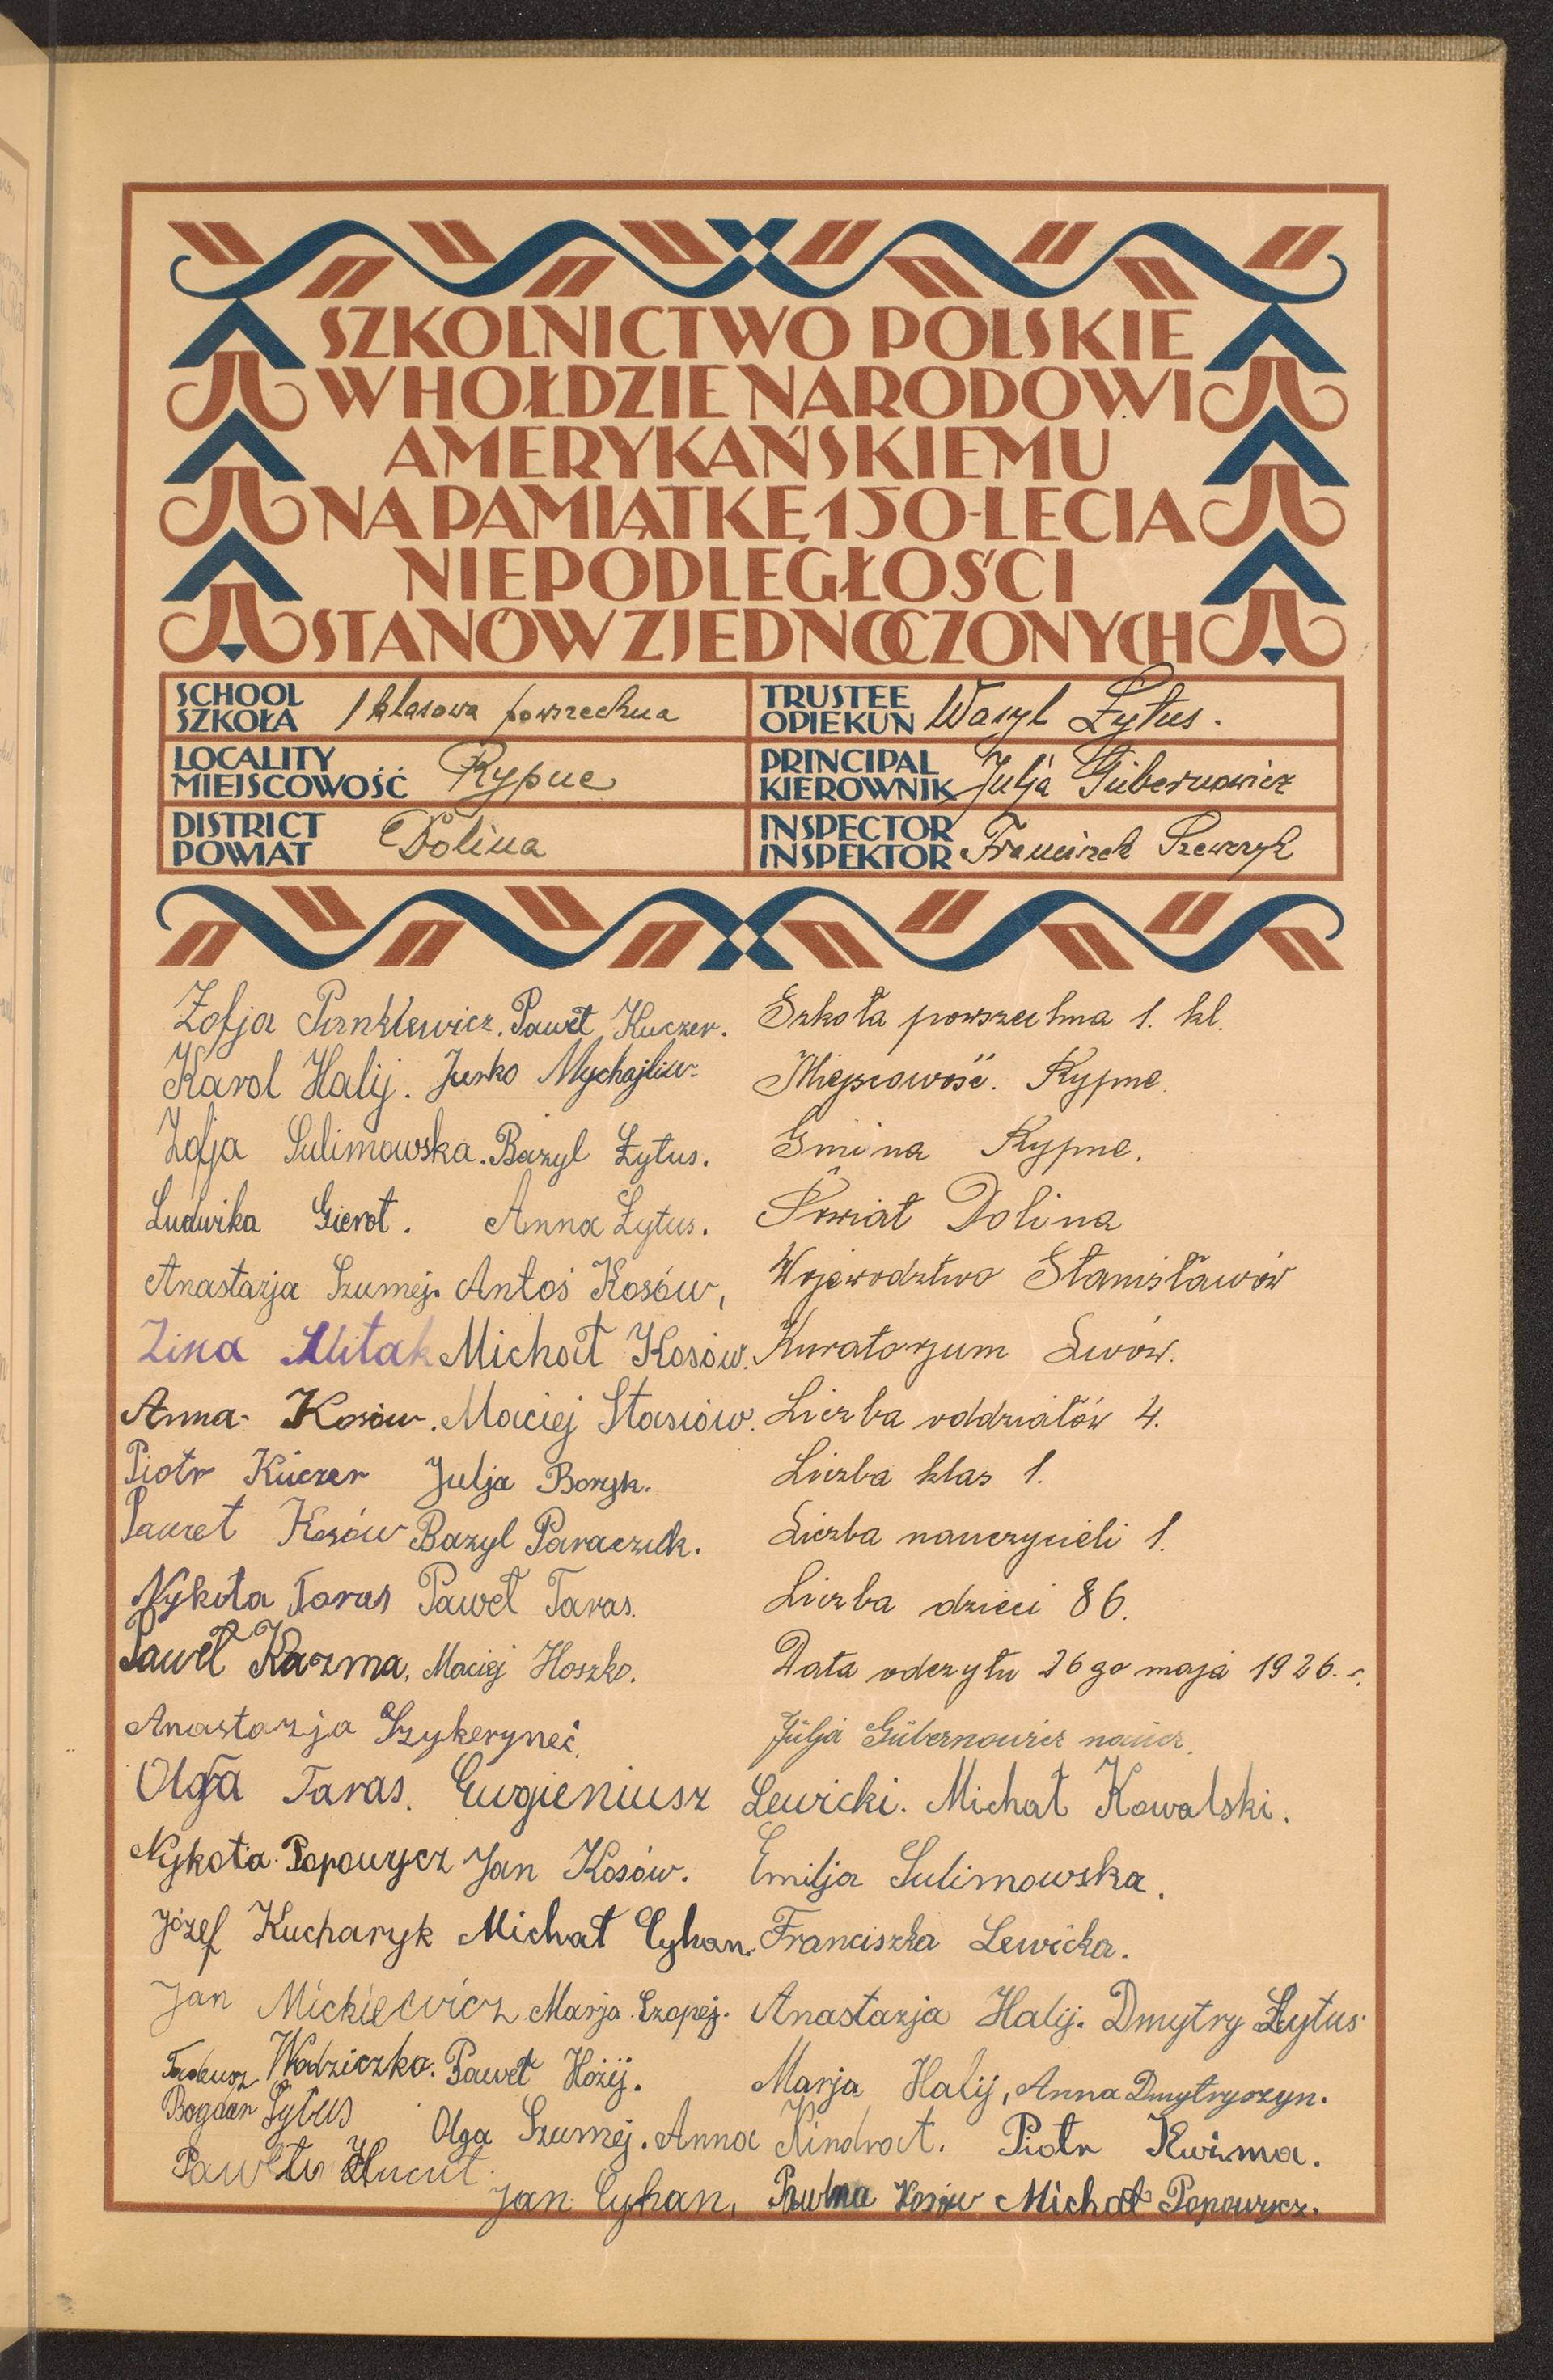 SZKOLNICTWO POLSKIE
W HOŁDZIE NARODOWI
AMERYKAŃSKIEMU
NA PAMIĄTKĘ 150-LECIA
NIEPODLEGŁOŚCI
STANÓW ZJEDNOCZONYCH
SCHOOL
SZKOŁA 1 klasowa powszechna
TRUSTEE
OPIEKUN Wasyl Łytus.
LOCALITY
MIEJSCOWOŚĆ Rypne
PRINCIPAL
KIEROWNIK Julja Gubernowicz
DISTRICT
POWIAT Dolina
INSPECTOR
INSPEKTOR Franciszek Szewczyk
Zofja Pankiewicz. Paweł Kuczer.
Karol Halij. Jurko Mychajliw.
Zofja Sulimowska. Bazyl Łytus.
Ludwika Gierot. Anna Łytus.
Anastazja Szumej. Antoś Kosów,
Zina Michał Kosów.
Anna Kosów. Maciej Stasiów.
Piotr Kuczer Julja Boryk.
Paweł Kosów Bazyl Paraczuk.
Nykoła Taras Paweł Taras.
Paweł Kuzma. Maciej Hoszko.
Anastazja Szykeryneć.
Szkoła powszechna 1. kl.
Miejscowość. Rypne.
Gmina Rypne.
Powiat Dolina
Województwo Stanisławów
Kuratorjum Lwów.
Liczba oddziałów 4.
Liczba klas 1.
Liczba nauczycieli 1.
Liczba dzieci 86.
Data odczytu 26go maja 1926. r.
Julja Gubernowicz naucz.
Olga Taras. Eugieniusz Lewicki. Michał Kowalski.
Nykoła Popowycz Jan Kosów. Emilja Sulimowska.
Józef Kucharyk Michał Cyhan. Franciszka Lewicka.
Jan Mickiewicz Marja Czopej. Anastazja Halij. Dmytry Łytus
Tadeusz Wodziczko. Paweł Hożij. Marja Halij, Anna Dmytryszyn.
Bogdan Łytus Olga Szumej. Anna Kindrat. Piotr Kuźma.
Jan Cyhan, Kosów Michał Popowycz.